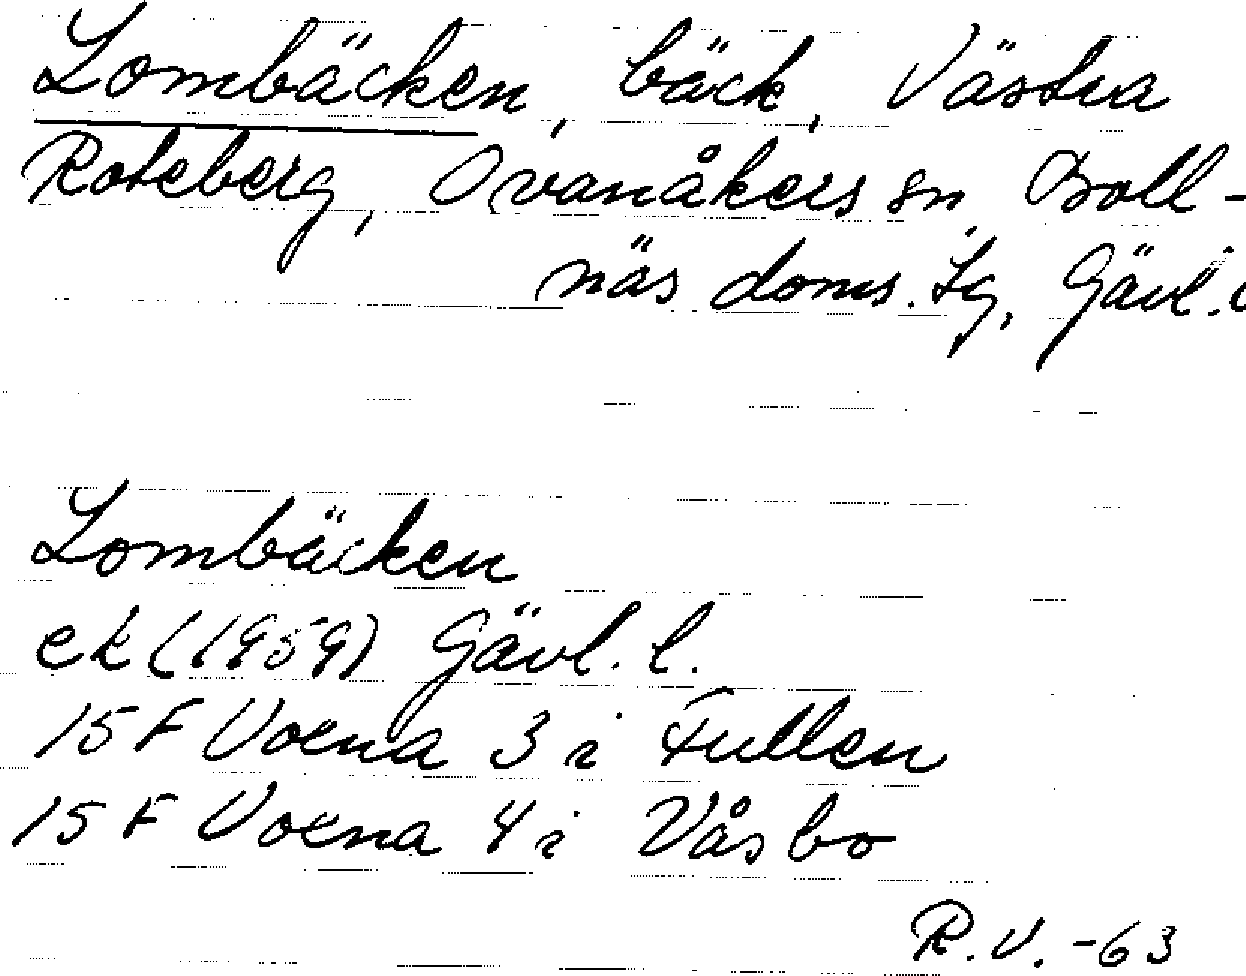 Lombäcken, bäck, Västra
Roteberg, Ovanåkers sn, Boll-
näs doms. tg, Gävl.
Lombäcken
ek (1959) Gävl. l.
15 F Voxna 3 i Fullen
15 F Voxna 4 i Våsbo
R.V. -63